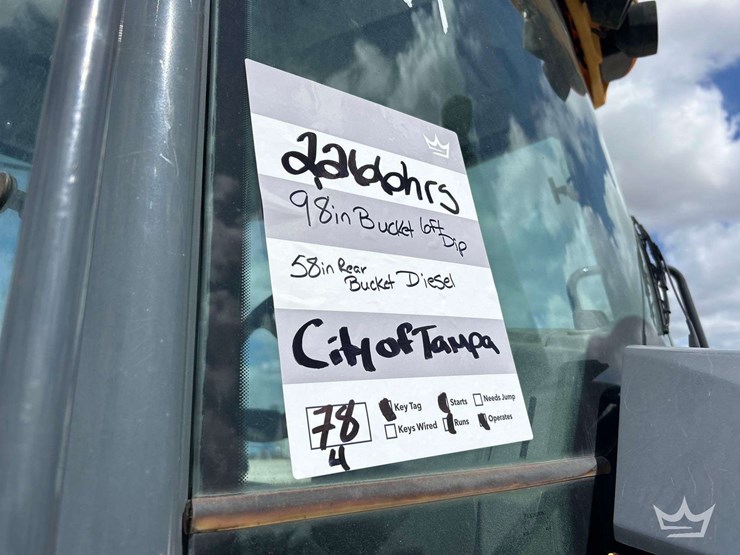 2,266hrs
98in Bucket 6ft Dip
58in Rear
Bucket Diesel
City of Tampa
78
4
Key Tag Starts Needs Jump
Keys Wired Runs Operates